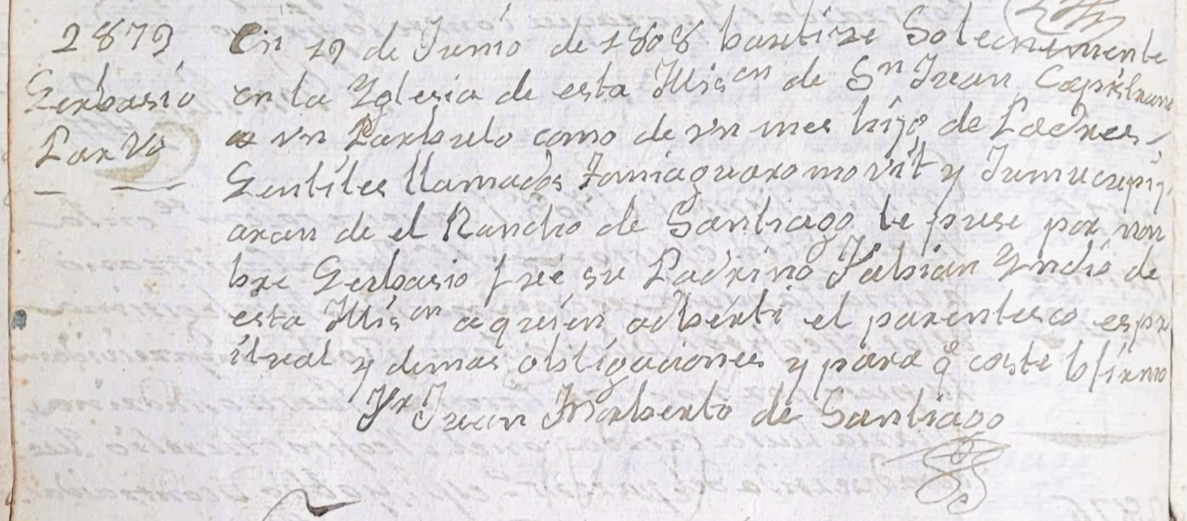 2873 En 12 de Junio de 1808 bautize Solemnemente
Gerbasio en la Yglesia de esta Misⁿ de Sⁿ Juan Capistrano
Parvo a vn Parbulo como de vn mes hijo de Padres
Gentiles llamados y
de el Rancho de Santiago le puse por nom
bre Gerbasio fue su Padrino Fabian Yndio de
esta Misⁿ aquien adberti el parentesco espi
itual y demas obligaciones y para q̃ coste lo firmo
Fr Juan Norberto de Santiago